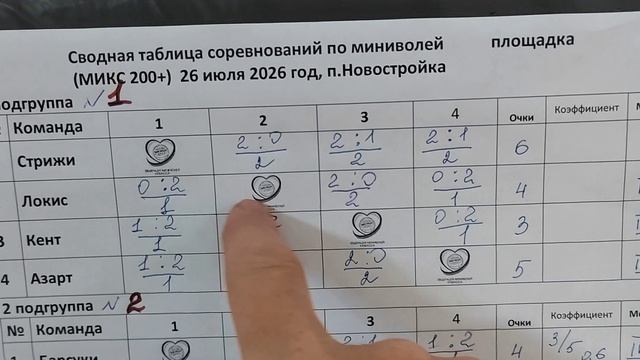 Сводная таблица соревнований по миниволей площадка
(МИКС 200+) 26 июля 2026 год, п.Новостройка
подгруппа №1
Команда 1 2 3 4 Очки Коэффициент
Стрижи 2:0 2:1 2:1 6
2 2 2
Локис 0:2 2:0 0:2 4
1 2 1
3 Кент 1:2 0:2 3
1 2 1
4 Азарт 1:2 2:0 5
1 2
2 подгруппа №2
№ Команда 1 3 4 Очки Коэффициент
4 3/5 0,6